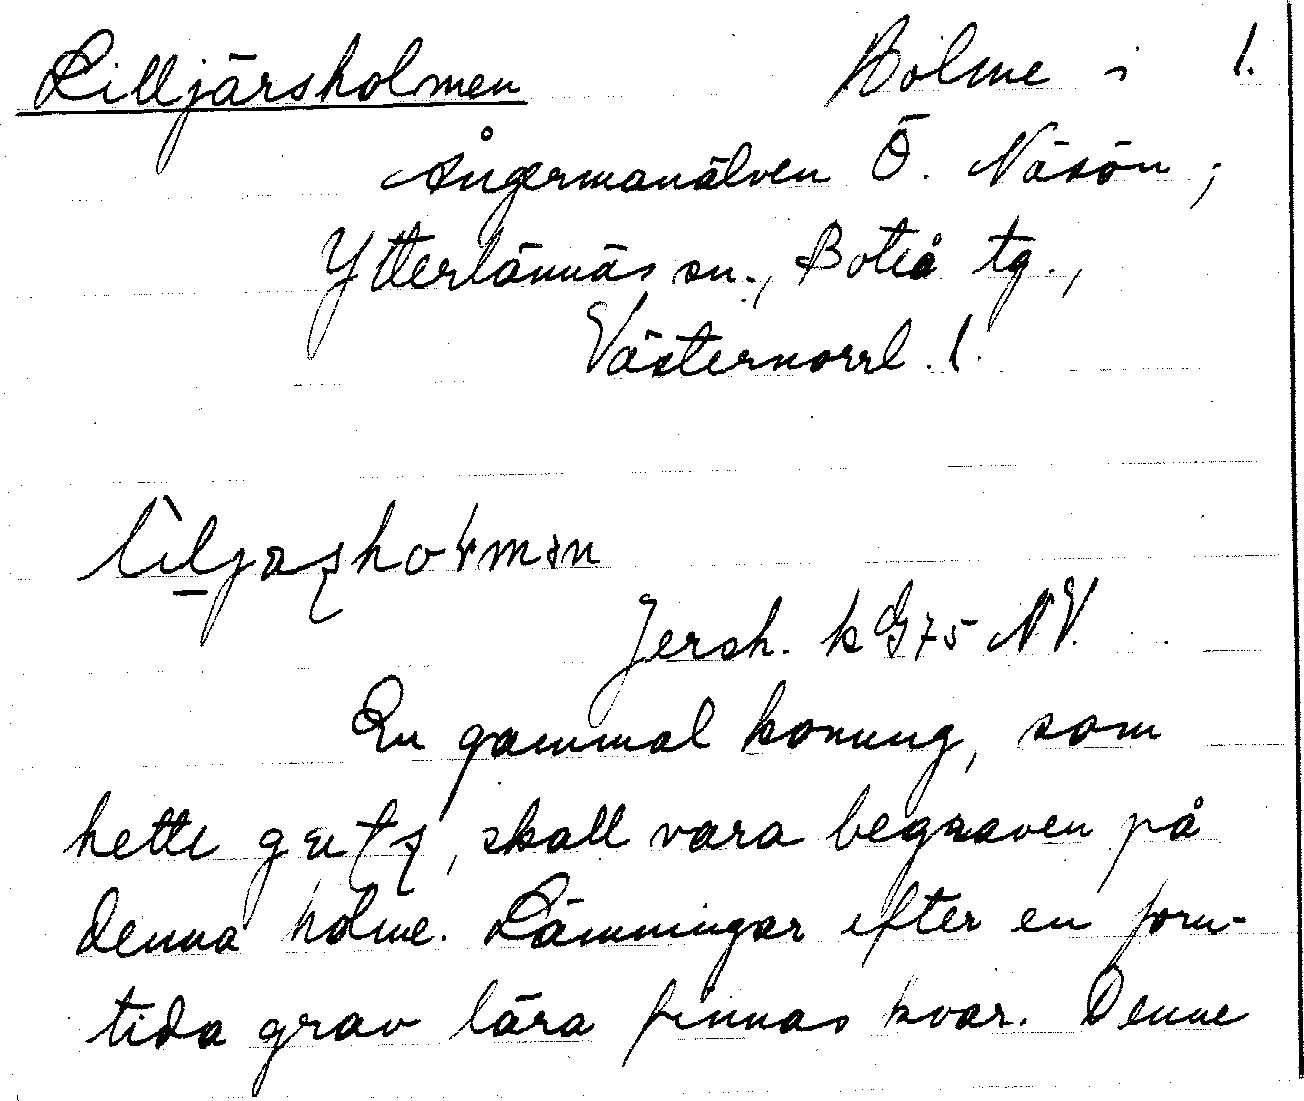 Lilljärsholmen Holme i 1.
Ångermanälven Ö. Näsön,
Ytterlännäs sn., Boteå tg.,
Västernorrl. l.
Jersh. k G75 NV.
En gammal konung, som
hette, skall vara begraven på
denna holme. Lämningar efter en forn-
tida grav lära finnas kvar. Denne